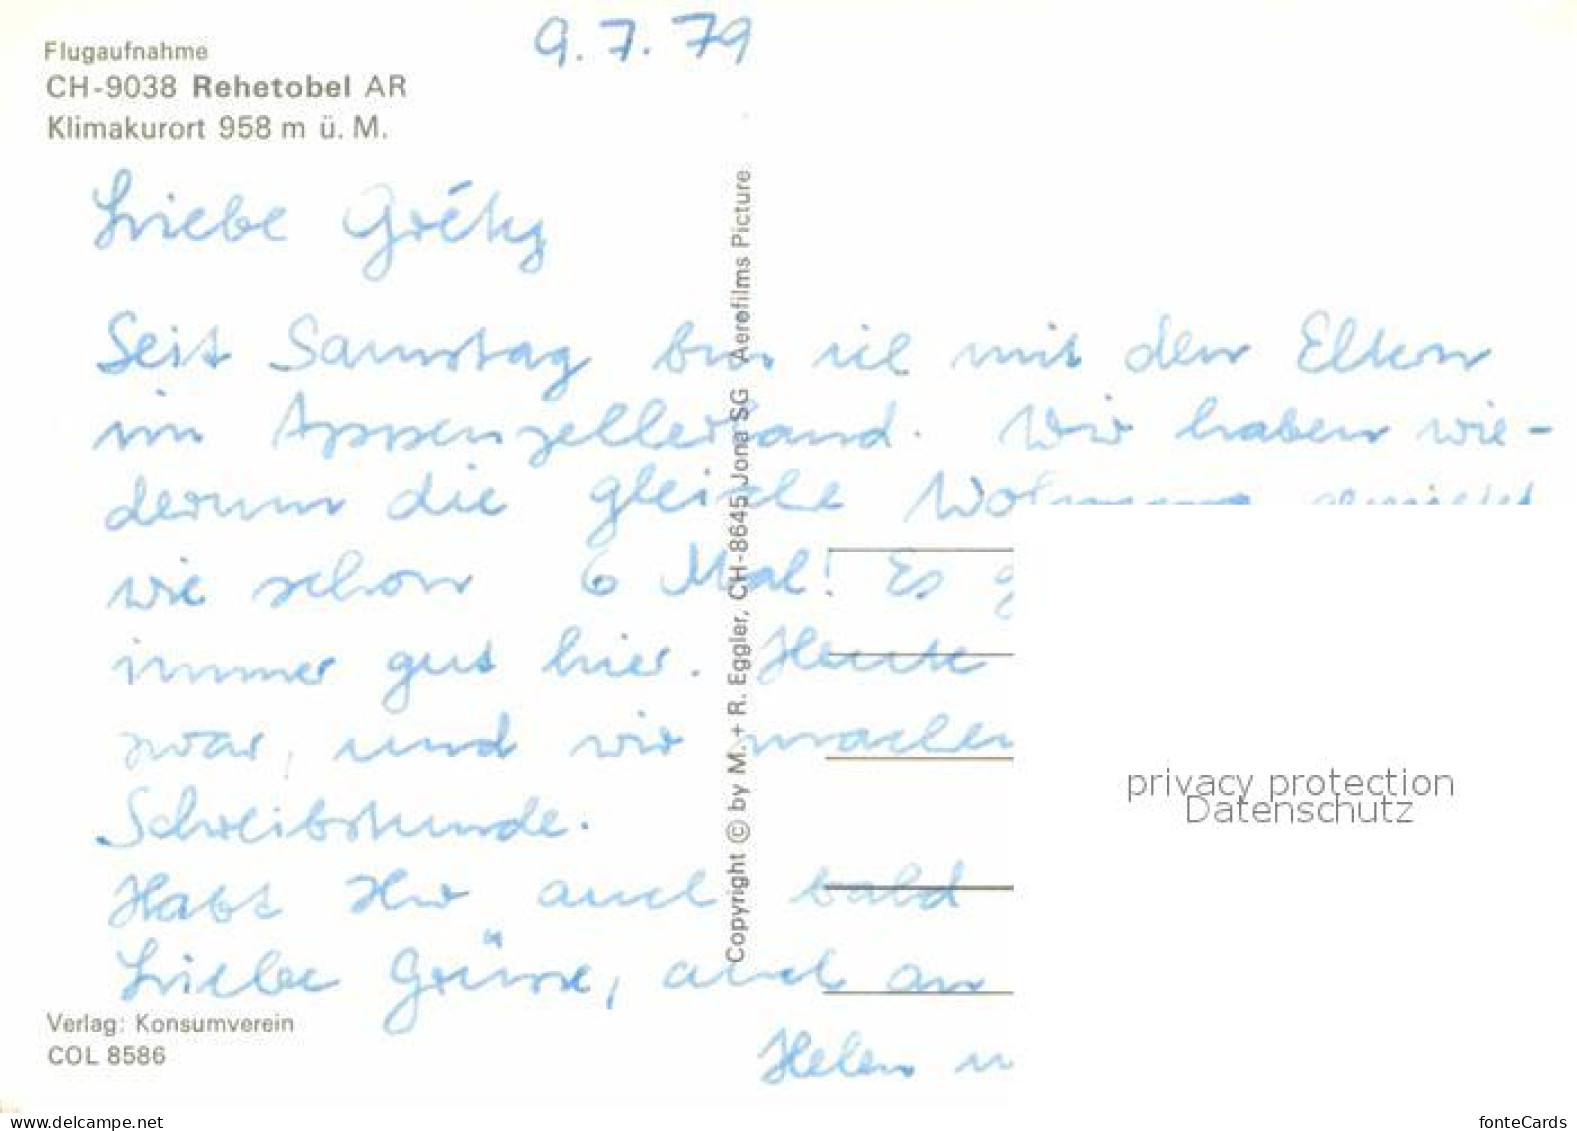 9.7.79
Flugaufnahme
CH-9038 Rehetobel AR
Klimakurort 958 m ü. M.
Liebe
Seit Samstag bin ich mit den Eltern
im Appenzellerland. Wir haben wie-
derum die gleiche Wohnung gemietet
wie schon 6 Mal! Es
immer gut hier. Heute
zwar, und wir machen
Schreibstunde.
Habt Ihr auch bald
Liebe Grüsse, auch an
Helen
Copyright © by M. + R. Eggler, CH-8645 Jona SG Aerofilms Picture
Verlag: Konsumverein
COL 8586
privacy protection
Datenschutz
www.delcampe.net
fonteCards